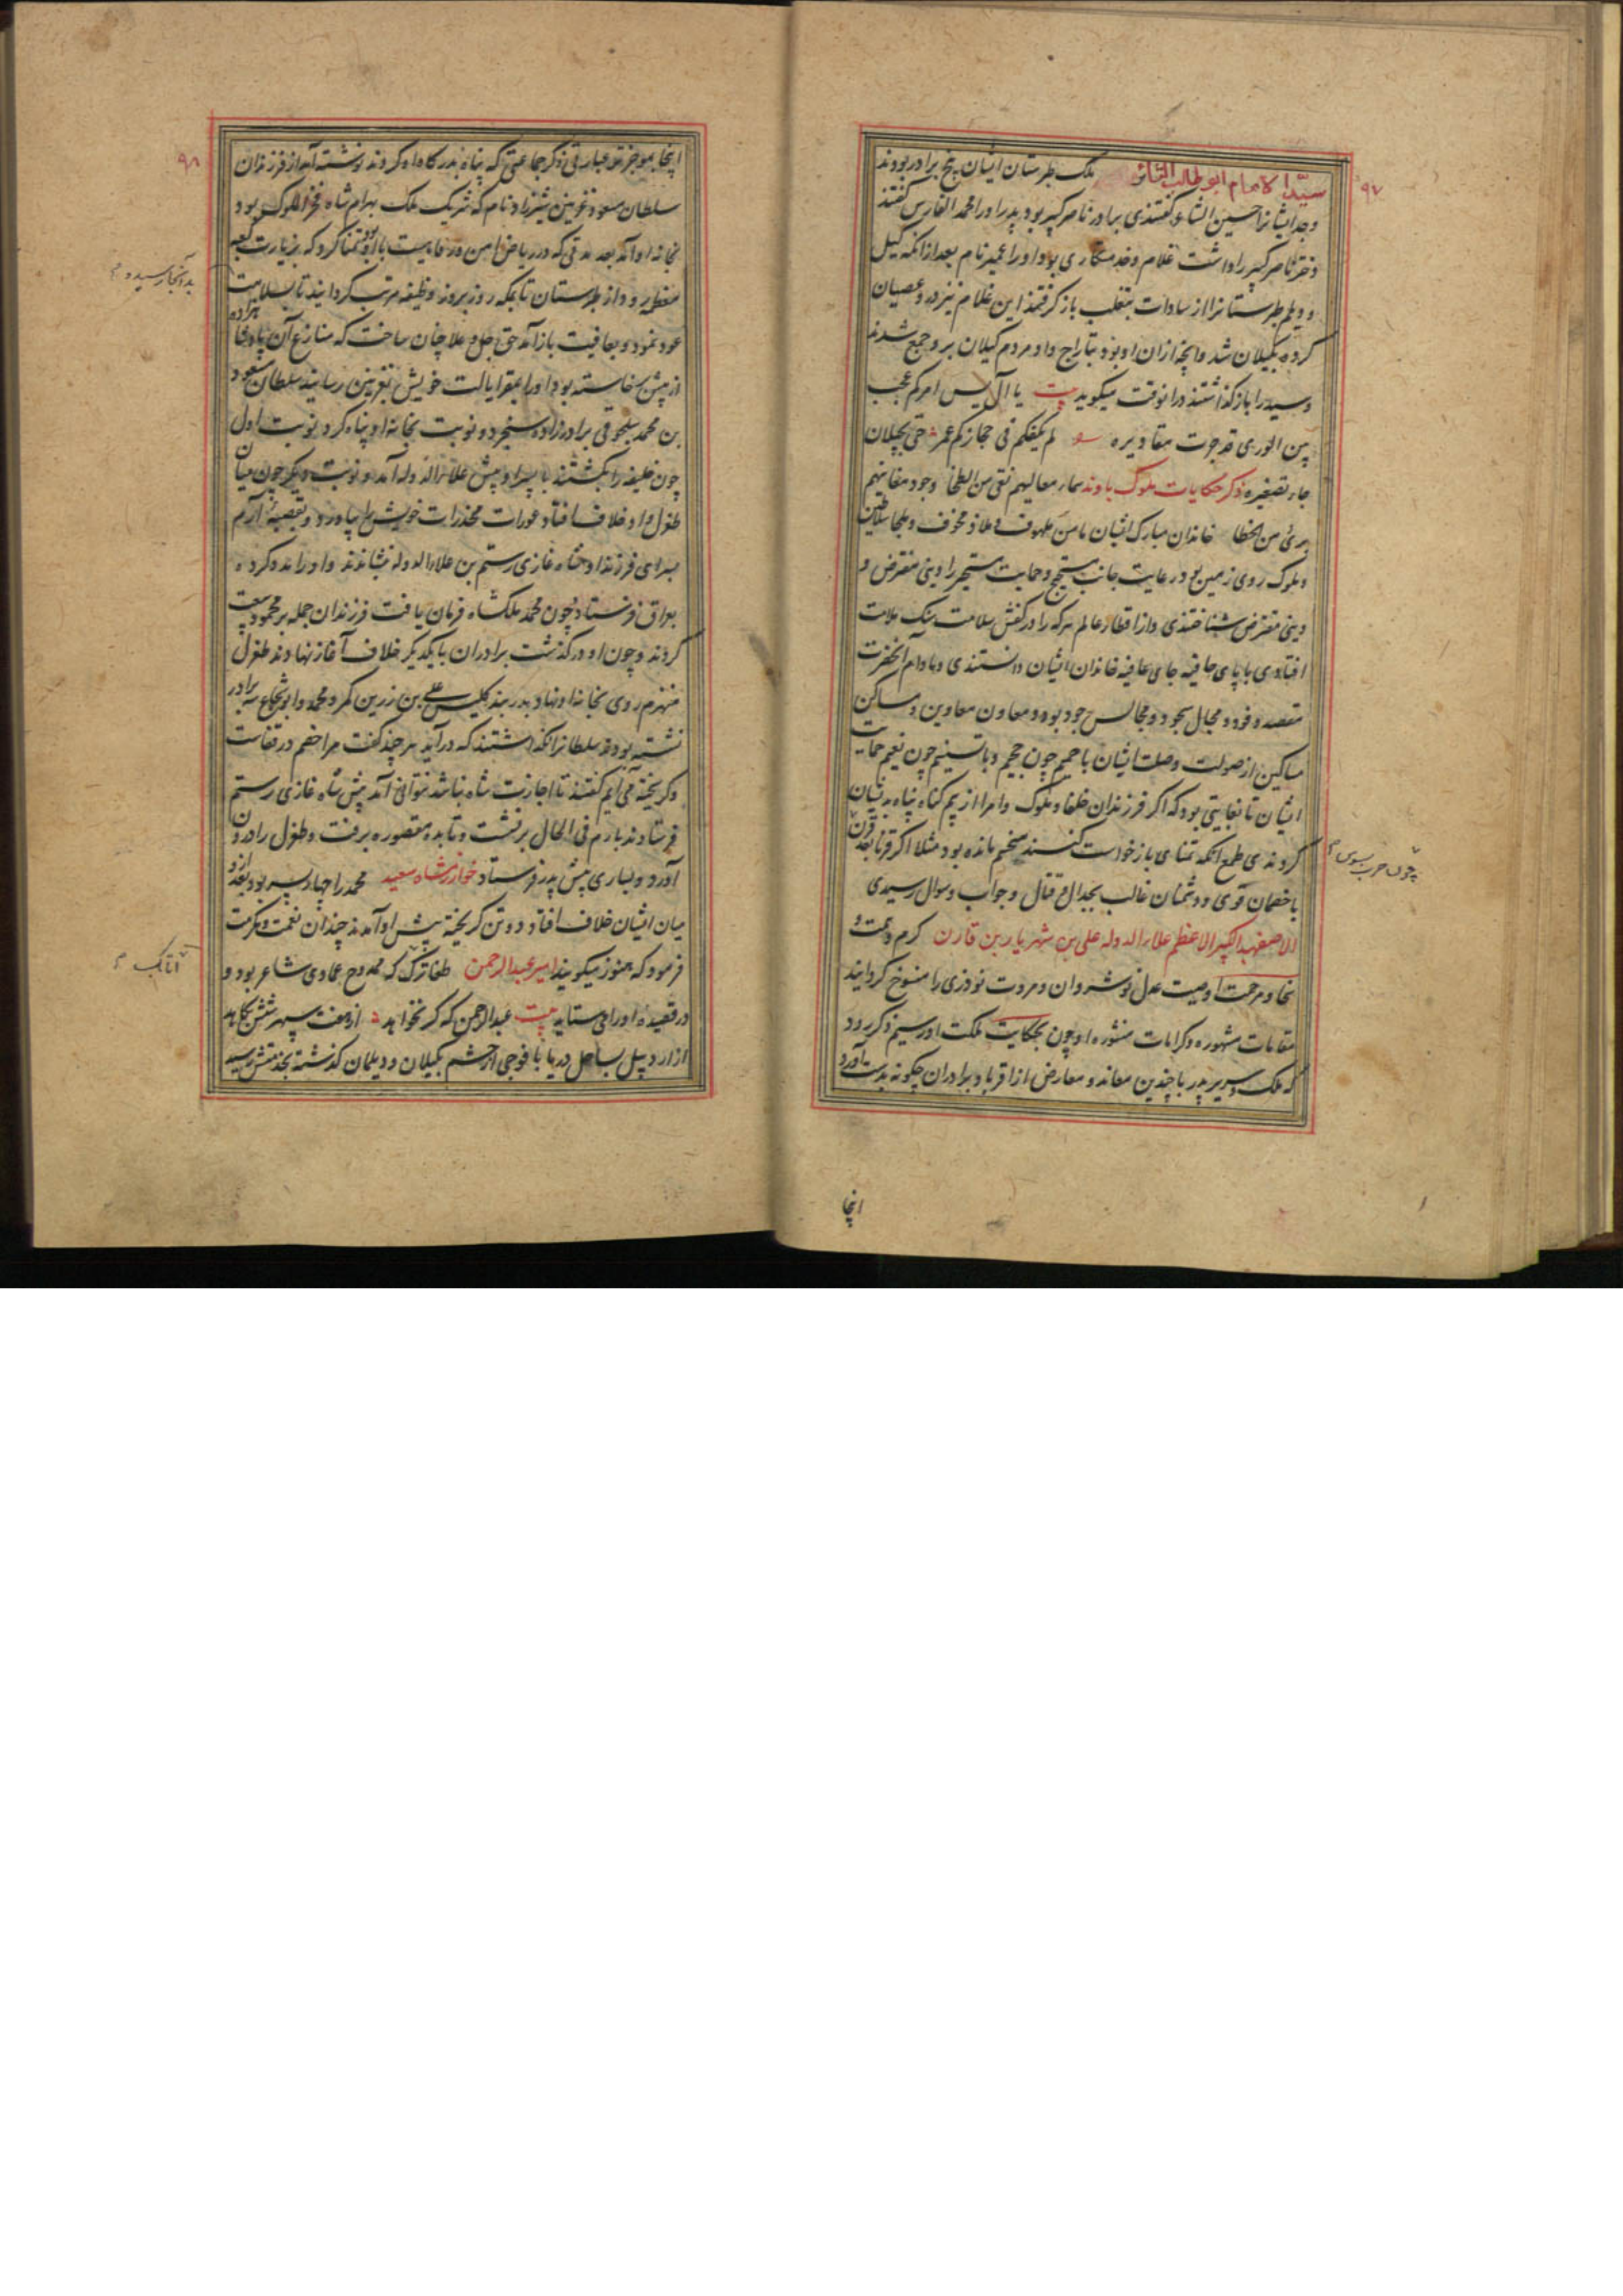 ۹۷
سید الامام ابو طالب الثائر ملک طبرستان ایشان پنج برادر بودند
وجد ایشانرا حسین الشاعر گفتندی برادر ناصر کبیر بود پدر او را محمد الفارس گفتند
دختر ناصر کبیر را داشت غلام و خدمتکاری بود او را عمیر نام بعد از انکه گیل
و دیلم طبرستانرا از سادات بتغلب باز گرفتند این غلام نیز در و عصیان
کرده بگیلان شد و آنچه ازان او بود بتاراج داد و مردم گیلان برو جمع شدند
و سید را باز گذاشتند درانوقت میگوید بیت یا آل یس امرکم عجب
بین الوری قد جرت مقادیره لم یکفکم فی حجازکم عمر حتی بجیلان
جاء تصغیره ذکر حکایات ملوک باوند سماء معالیهم نقی من الطخا وجود مغانیهم
بری من الخطا خاندان مبارک ایشان مامن ملهوف و ملاذ مخوف و ملجا سلاطین
و ملوک روی زمین بود رعایت جانب مستمیح و حمایت مستجیر را دینی مفترض و
دینی مقترض شناختندی و از اقطار عالم هر که را در کفش سلامت سنگ ملامت
افتادی با پای حافیه جای عافیه خاندان ایشان دانستندی و مادام آنحضرت
مقصد وفود و مجال سجود و مجالس جود بوده و معاون معاوین و مساکن
مساکین از صولت وصلت ایشان با حمیم چون جحیم و با تسنیم چون نعیم حمایت
ایشان تا بغایتی بود که اگر فرزندان خلفا و ملوک و امرا از بیم گناه پناه بدیشان
کردندی طمع انکه تمنای باز خواست کنند سخیم مانده بود مثلا اگر قرنا بعد قرن
چون حرب بسوس
با خصمان قوی و دشمنان غالب بجدال و قتال و جواب و سوال رسیدی
الاصفهبد الکبیر الاعظم علاء الدوله علی بن شهریار بن قارن کرم و همت و
سخا و مرحمت او صیت عدل نوشروان و مروت نوذری را منسوخ گردانید
مقامات مشهوره و کرامات منشوره او چون بحکایت ملکت او رسیم ذکر رود
که ملک و سریر پدر با چندین معاند و معارض از اقربا و برادران چگونه بدست آورد
اینجا
۹۸
اینجا بموجزتر عبارتی ذکر جماعتی که پناه بدرگاه او کردند نوشته آید از فرزندان
سلطان مسعود غزنین شیرزاد نام که شریک ملک بهرام شاه فخر الملوک بود
بخانه او آمد بعد مدتی که در ریاض امن و رفاهیت با او بود تمنا کرد که بزیارت کعبه
معظمه رود از طبرستان تا بمکه روز بروز وظیفه مرتب گردانید تا بسلامت
بدآنجا رسیده
عود نمود و بعافیت باز آمد حتی جل و علا چنان ساخت که منازع آن پادشاهزاده
از پیش برخاسته بود او را بمقر ایالت خویش بغزنین رسانید سلطان مسعود
بن محمد سلجوقی برادرزاده سنجر دو نوبت بخانه او پناه کرد نوبت اول
چون خلیفه را بکشتند با پسر او پیش علاء الدوله آمد و نوبت دیگر چون میان
طغرل و او خلاف افتاد عورات مخدرات خویش را بیاورد و بقصبه آرم
بسرای فرزند او شاه غازی رستم بن علاء الدوله نشاندند و او را مدد کرده
بعراق فرستاد چون محمد ملکشاه فرمان یافت فرزندان جمله بر محمود بیعت
کردند و چون او در گذشت برادران با یکدیگر خلاف آغاز نهادند طغرل
منهزم روی بخانه او نهاد و بدربند کلیس علی بن زرین کمر و محمد و ابو شجاع سه برادر
نشسته بودند سلطانرا نگذاشتند که درآید هر چند گفت مرا خصم در قفاست
و گریخته می آیم گفتند تا اجازت شاه نباشد نتوانی آمد پیش شاه غازی رستم
فرستادند بآرم فی الحال برنشست و تا بده مقصوره برفت و طغرل را درون
آورد و بساری پیش پدر فرستاد خوارزمشاه سعید محمد را چهار پسر بود بعد ازو
میان ایشان خلاف افتاد دو تن گریخته پیش او آمدند چندان نعمت و مکرمت
فرمود که هنوز میگویند امیر عبد الرحمن طغایرک که ممدوح عمادی شاعر بود و
اتابک
در قصیده او را می ستاید بیت عبد الرحمن که گر نخواهد از هفت سپهر شش بکاهد
از اردبیل بساحل دریا با فوجی از حشم بگیلان و دیلمان گذشته بخدمتش رسید